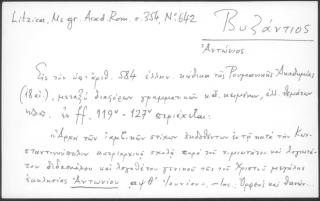 Litzica, Ms gr. Acad. Rom. σ. 354, Nο 642
Βυζάντιος
Ἀντώνιος
Εἰς τὸν ὑπ' ἀριθ. 584 ἑλλην. κώδικα τῆς Ρουμανικῆς Ἀκαδημίας
(18 αἰ.), μεταξὺ διαφόρων γραμματικῶν κειμένων, ἀλλ. θεμάτων
ἐν ff. 119α - 127α περιέχεται:
"Ἀρχὴ τῶν ἰαμβικῶν στίχων ἐκδοθέντων ἐν τῇ κατὰ τὴν Κων-
σταντινούπολιν πατριαρχικῇ σχολῇ παρὰ τοῦ τιμιωτάτου καὶ λογιωτά-
του διδασκάλου καὶ λογοθέτου γενικοῦ τῆς τοῦ Χριστοῦ μεγάλης
ἐκκλησίας Ἀντωνίου αψθʹ Ἰουνίου, Ὀρφεὺς καὶ θανὼν...